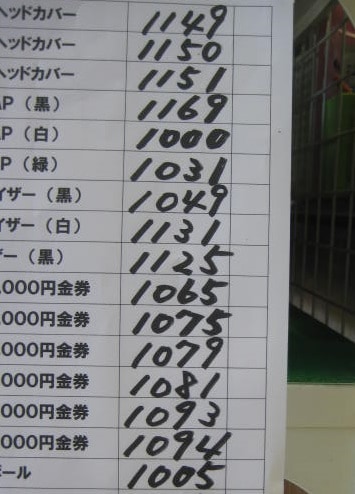 ヘッドカバー 1149
ヘッドカバー 1150
ヘッドカバー 1151
AP（黒） 1169
AP（白） 1000
P（緑） 1031
イザー（黒） 1049
イザー（白） 1131
ザー（黒） 1125
,000円金券 1065
,000円金券 1075
,000円金券 1079
000円金券 1081
000円金券 1093
000円金券 1094
ボール 1005